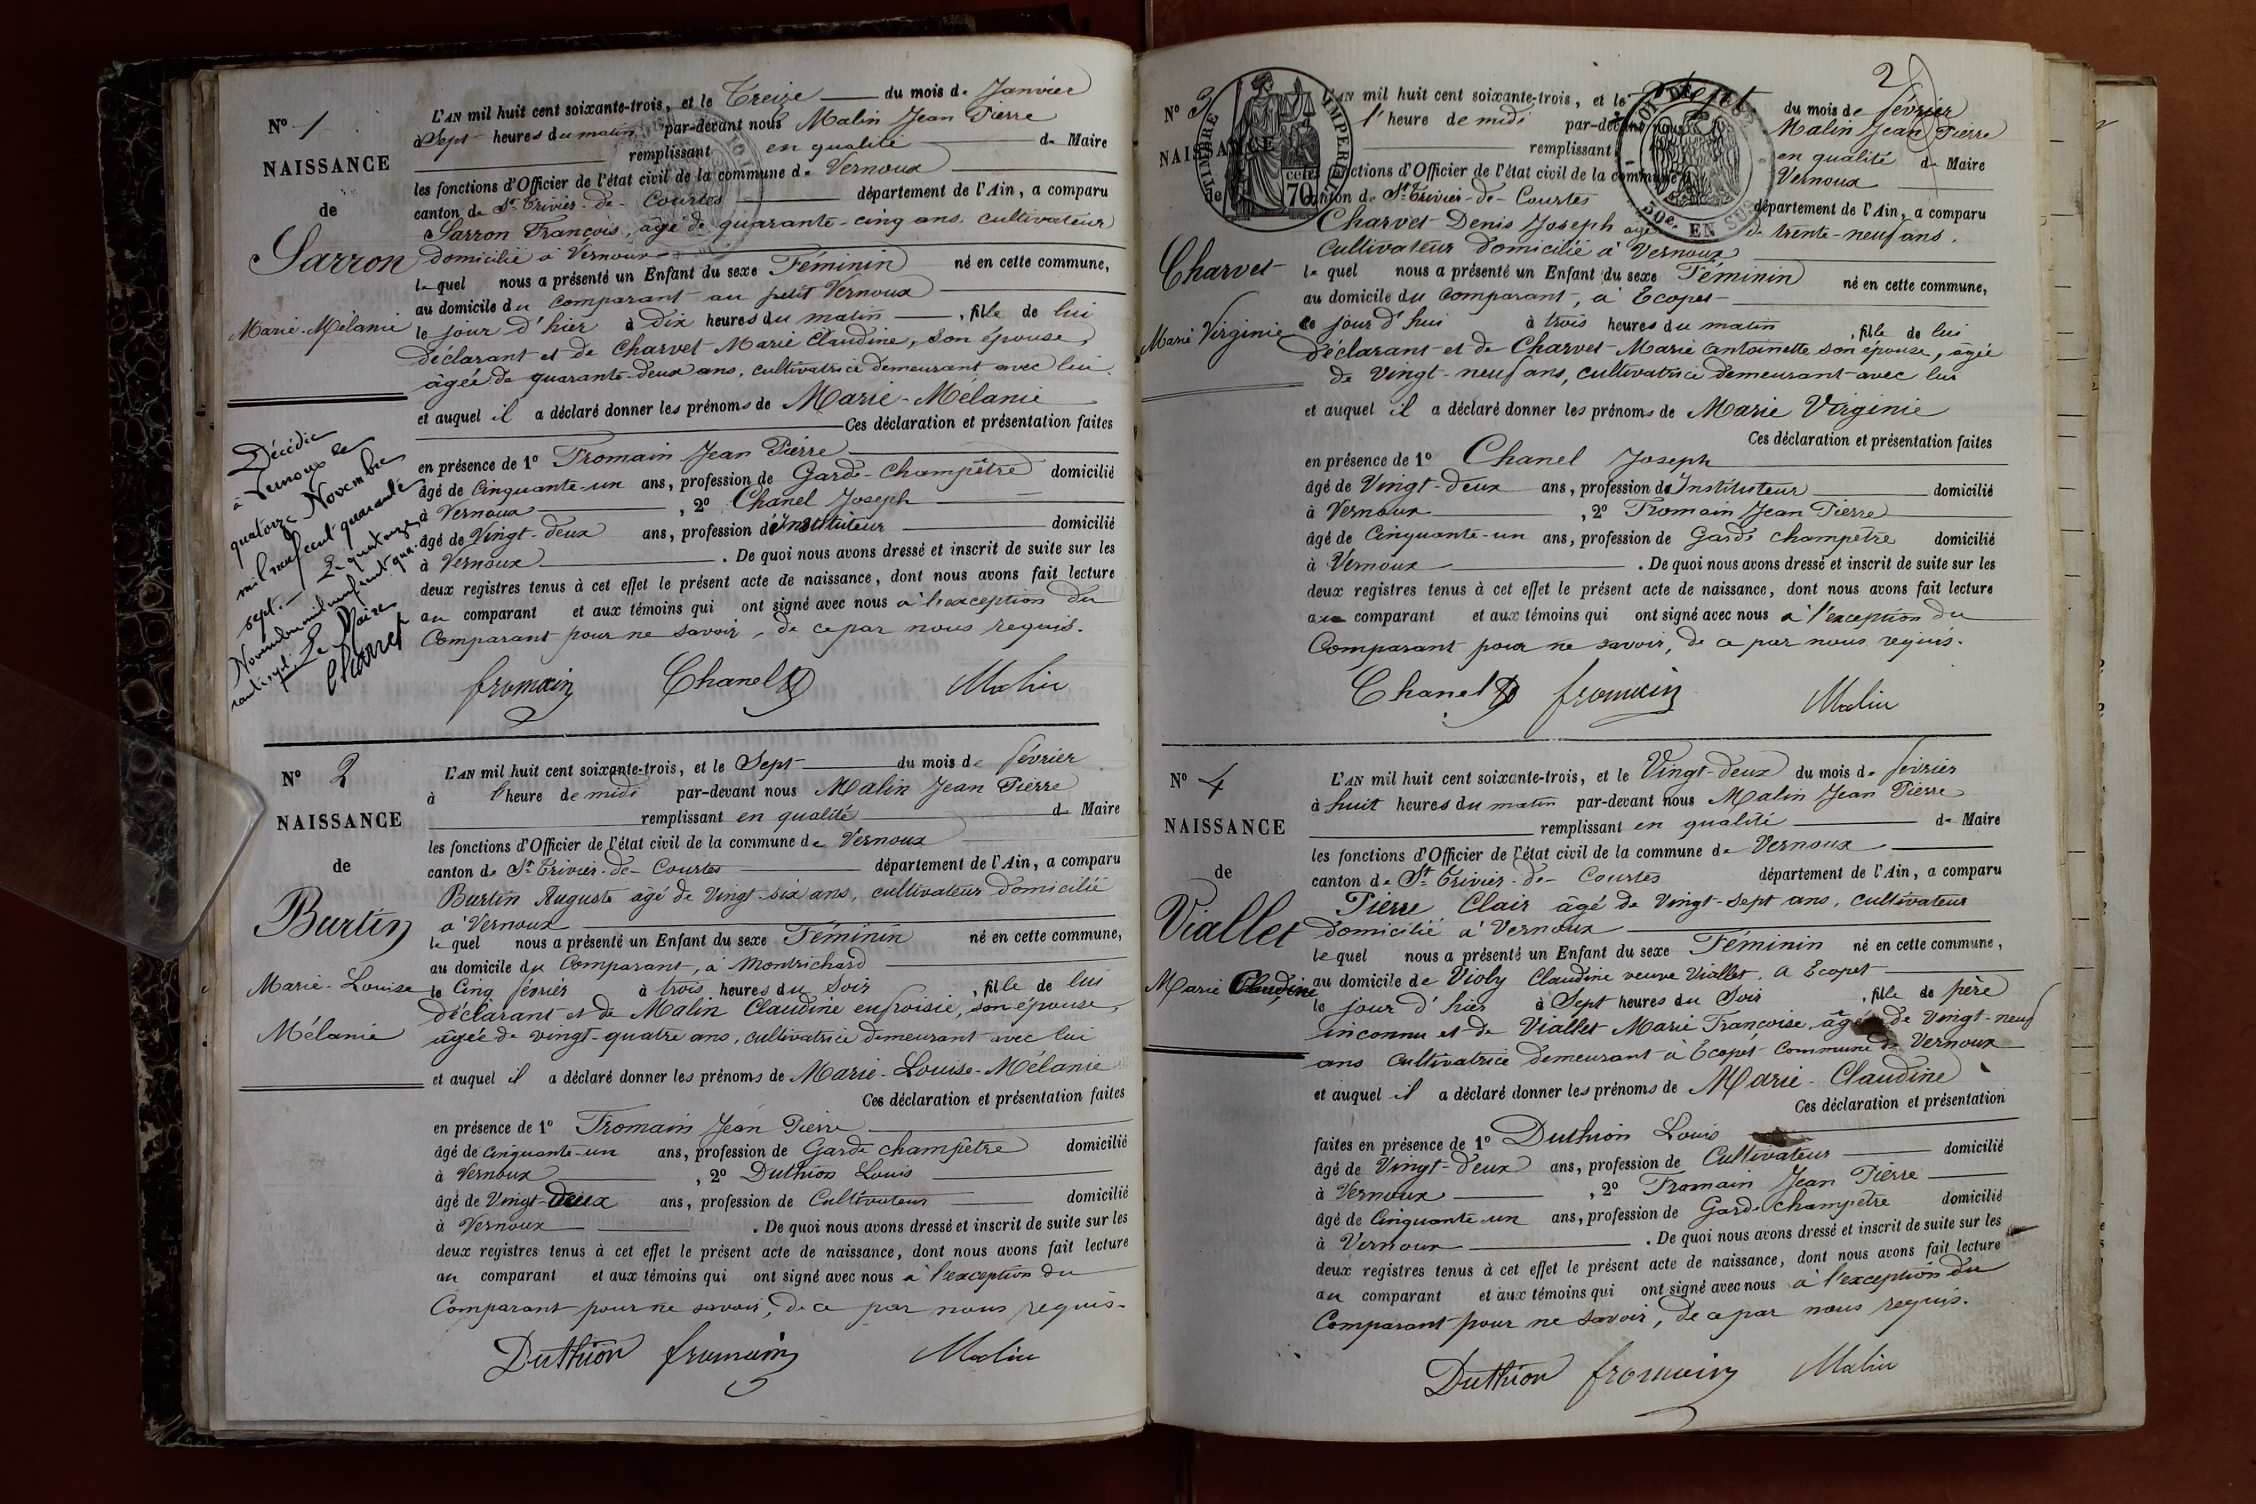 N° 1
NAISSANCE
de
Sarron
Marie-Mélanie
Décédée
à Vernoux le
quatorze Novembre
mil neuf cent quarante
sept. — Le quatorze
Novembre mil neuf cent qua-
rante sept. Le Maire
Charvet
L'AN mil huit cent soixante-trois, et le Treize du mois de Janvier
à Sept heures du matin par-devant nous Malin Jean Pierre
remplissant en qualité de Maire
les fonctions d'Officier de l'état civil de la commune de Vernoux
canton de St Trivier-de-Courtes département de l'Ain, a comparu
Sarron François, âgé de quarante-cinq ans, cultivateur
domicilié à Vernoux
lequel nous a présenté un Enfant du sexe Féminin né en cette commune,
au domicile du comparant au petit Vernoux
le jour d'hier à dix heures du matin, fille de lui
déclarant et de Charvet Marie Claudine, son épouse,
âgée de quarante-deux ans, cultivatrice demeurant avec lui.
et auquel il a déclaré donner les prénoms de Marie-Mélanie
Ces déclaration et présentation faites
en présence de 1° Fromain Jean Pierre
âgé de Cinquante-un ans, profession de Garde-Champêtre domicilié
à Vernoux, 2° Chanel Joseph
âgé de Vingt-deux ans, profession d'Instituteur domicilié
à Vernoux. De quoi nous avons dressé et inscrit de suite sur les
deux registres tenus à cet effet le présent acte de naissance, dont nous avons fait lecture
au comparant et aux témoins qui ont signé avec nous à l'exception du
Comparant pour ne savoir, de ce par nous requis.
fromain Chanel J Malin
N° 2
NAISSANCE
de
Burtin
Marie-Louise
Mélanie
L'AN mil huit cent soixante-trois, et le Sept du mois de février
à l'heure de midi par-devant nous Malin Jean Pierre
remplissant en qualité de Maire
les fonctions d'Officier de l'état civil de la commune de Vernoux
canton de St Trivier-de-Courtes département de l'Ain, a comparu
Burtin Auguste âgé de Vingt-six ans, cultivateur domicilié
à Vernoux
lequel nous a présenté un Enfant du sexe Féminin né en cette commune,
au domicile du Comparant, à Montrichard
le Cinq février à trois heures du soir, fille de lui
déclarant et de Malin Claudine eufroisie, son épouse,
âgée de vingt-quatre ans, cultivatrice demeurant avec lui
et auquel il a déclaré donner les prénoms de Marie-Louise-Mélanie
Ces déclaration et présentation faites
en présence de 1° Fromain Jean Pierre
âgé de Cinquante-un ans, profession de Garde champêtre domicilié
à Vernoux, 2° Duthion Louis
âgé de Vingt-deux ans, profession de Cultivateur domicilié
à Vernoux. De quoi nous avons dressé et inscrit de suite sur les
deux registres tenus à cet effet le présent acte de naissance, dont nous avons fait lecture
au comparant et aux témoins qui ont signé avec nous à l'exception du
Comparant pour ne savoir, de ce par nous requis.
Duthion fromain Malin
2
TIMBRE IMPERIAL
70 cent
50e EN SUS
N° 3
NAISSANCE
de
Charvet
Marie Virginie
L'AN mil huit cent soixante-trois, et le Sept du mois de février
l'heure de midi par-devant nous Malin Jean Pierre
remplissant en qualité de Maire
les fonctions d'Officier de l'état civil de la commune de Vernoux
canton de St Trivier-de-Courtes département de l'Ain, a comparu
Charvet Denis Joseph âgé de trente-neuf ans.
Cultivateur domicilié à Vernoux
lequel nous a présenté un Enfant du sexe Féminin né en cette commune,
au domicile du Comparant, à Ecopet
ce jour d'hui à trois heures du matin, fille de lui
Déclarant et de Charvet Marie Antoinette son épouse, âgée
de Vingt-neuf ans, cultivatrice demeurant avec lui
et auquel il a déclaré donner les prénoms de Marie Virginie
Ces déclaration et présentation faites
en présence de 1° Chanel Joseph
âgé de Vingt-deux ans, profession d'Instituteur domicilié
à Vernoux, 2° Fromain Jean Pierre
âgé de Cinquante-un ans, profession de Garde champêtre domicilié
à Vernoux. De quoi nous avons dressé et inscrit de suite sur les
deux registres tenus à cet effet le présent acte de naissance, dont nous avons fait lecture
au comparant et aux témoins qui ont signé avec nous à l'exception du
Comparant pour ne savoir, de ce par nous requis.
Chanel J fromain Malin
N° 4
NAISSANCE
de
Viallet
Marie Claudine
L'AN mil huit cent soixante-trois, et le Vingt-deux du mois de février
à huit heures du matin par-devant nous Malin Jean Pierre
remplissant en qualité de Maire
les fonctions d'Officier de l'état civil de la commune de Vernoux
canton de St Trivier-de-Courtes département de l'Ain, a comparu
Pierre Clair âgé de Vingt-sept ans, cultivateur
domicilié à Vernoux
lequel nous a présenté un Enfant du sexe Féminin né en cette commune,
au domicile de Violy Claudine veuve Viallet, à Ecopet
le jour d'hier à Sept heures du Soir, fille de père
inconnu et de Viallet Marie Françoise, âgée de Vingt-neuf
ans cultivatrice demeurant à Ecopet commune de Vernoux
et auquel il a déclaré donner les prénoms de Marie-Claudine
Ces déclaration et présentation
faites en présence de 1° Duthion Louis
âgé de Vingt-deux ans, profession de Cultivateur domicilié
à Vernoux, 2° Fromain Jean Pierre
âgé de Cinquante-un ans, profession de Garde champêtre domicilié
à Vernoux. De quoi nous avons dressé et inscrit de suite sur les
deux registres tenus à cet effet le présent acte de naissance, dont nous avons fait lecture
au comparant et aux témoins qui ont signé avec nous à l'exception du
Comparant pour ne savoir, de ce par nous requis.
Duthion fromain Malin